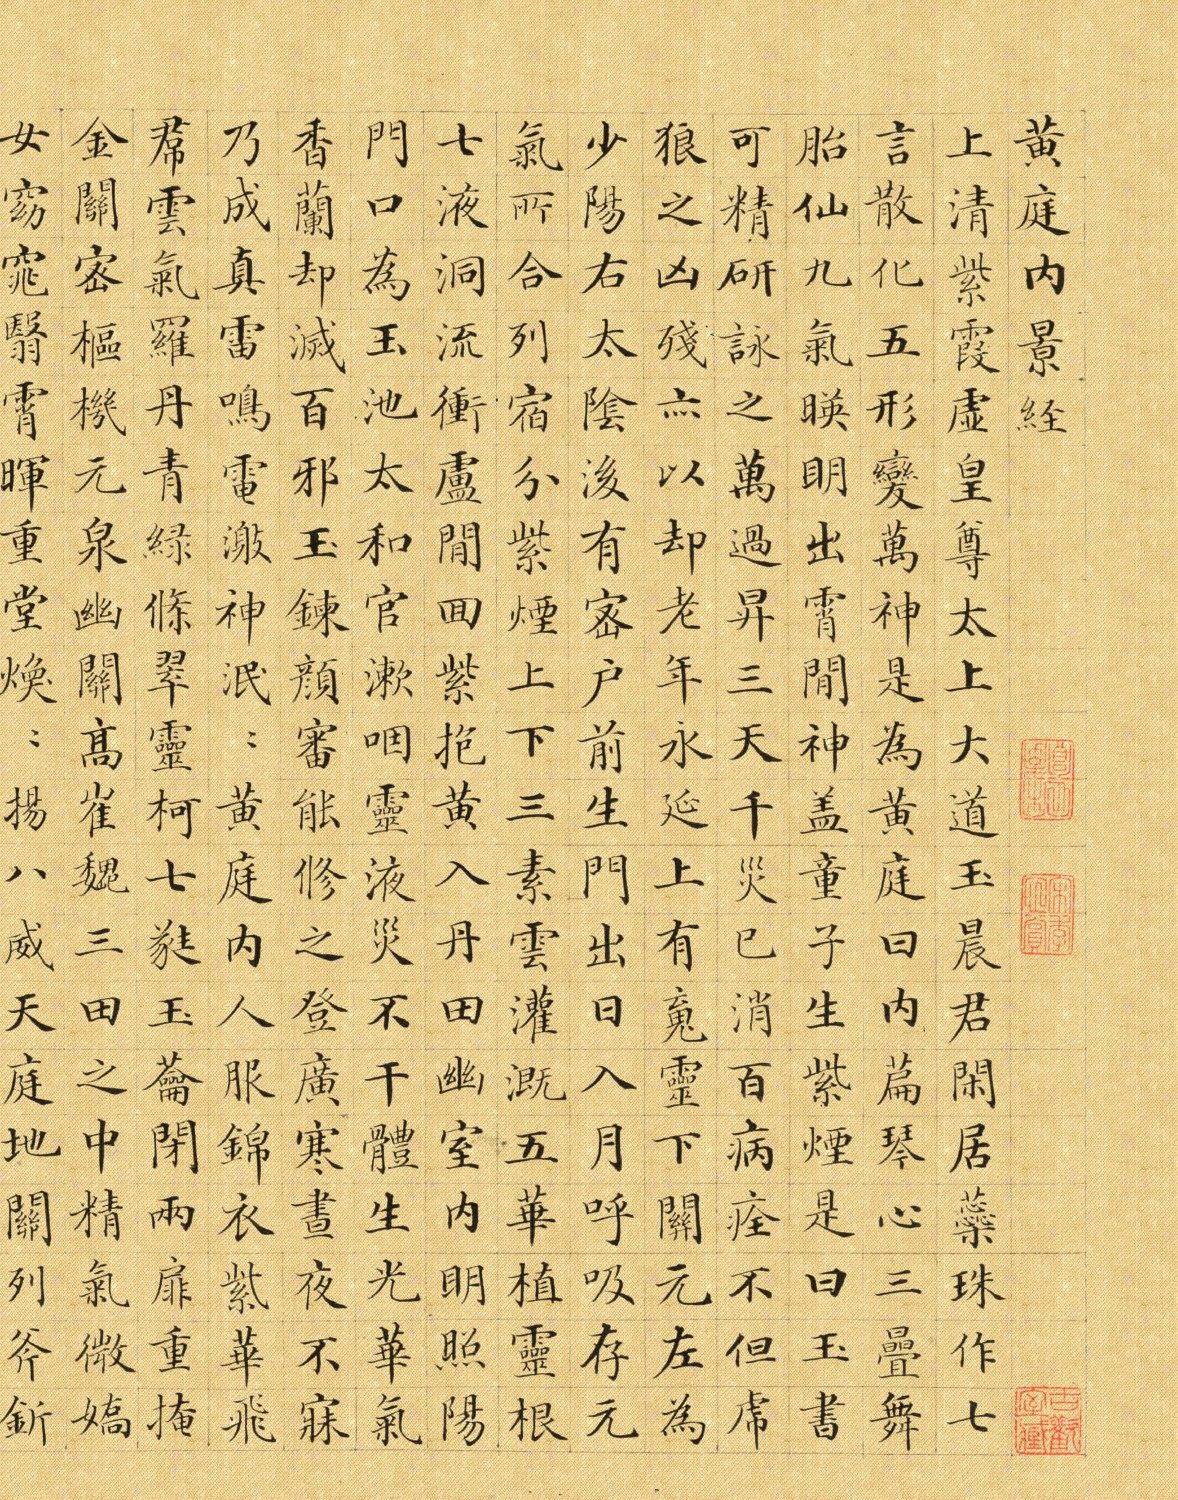 黄庭内景経
上清紫霞虛皇尊太上大道玉晨君閑居蘂珠作七
言散化五形變萬神是為黄庭曰内篇琴心三疊舞
胎仙九氣暎明出霄間神盖童子生紫煙是曰玉書
可精研詠之萬過昇三天千災已消百病痊不但虎
狼之凶殘亦以却老年永延上有䰟靈下關元左為
少陽右太陰後有密户前生門出日入月呼吸存元
氣所合列宿分紫煙上下三素雲灌溉五華植靈根
七液洞流衝盧間回紫抱黄入丹田幽室内明照陽
門口為玉池太和官漱咽靈液災不干體生光華氣
香蘭却滅百邪玉鍊顔審能修之登廣寒晝夜不寐
乃成真雷鳴電激神泯:黄庭内人服錦衣紫華飛
帬雲氣羅丹青緑條翠靈柯七蕤玉蘥閉兩扉重掩
金關密樞機元泉幽關高崔魏三田之中精氣微嬌
女窈窕翳霄暉重堂煥:揚八威天庭地關列斧釿